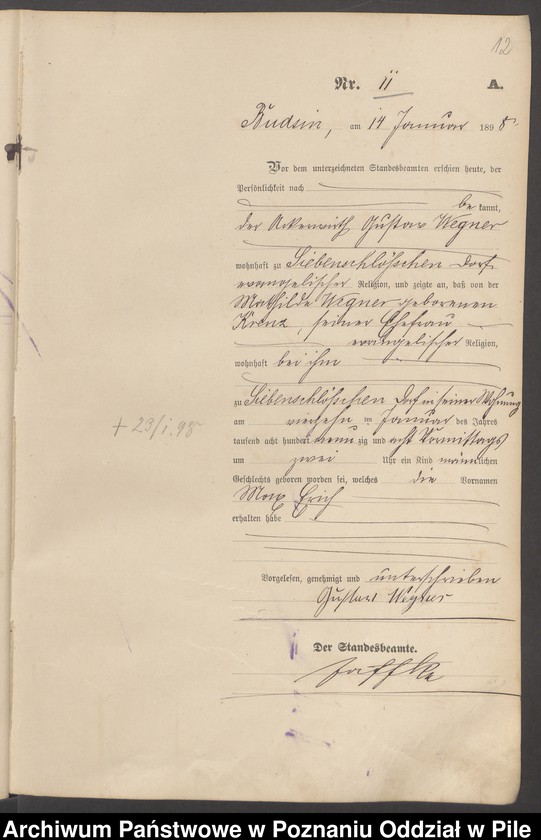 12
Nr. 11 A.
Budsin, am 14 Januar 1898
Vor dem unterzeichneten Standesbeamten erschien heute, der
Persönlichkeit nach
be kannt,
der Ackerwirth Gustav Wegner
wohnhaft zu Siebenschlößchen Dorf
evangelischer Religion, und zeigte an, daß von der
Mathilde Wegner geborenen
Krenz, seiner Ehefrau
evangelischer Religion,
wohnhaft bei ihm
zu Siebenschlößchen Dorf in seiner Wohnung
am vierzehn ten Januar des Jahres
tausend acht hundert neun zig und acht Vormittags
um zwei Uhr ein Kind männlichen
Geschlechts geboren worden sei, welches die Vornamen
Max Erich
erhalten habe
+ 23/1.98
Vorgelesen, genehmigt und unterschrieben
Gustav Wegner
Der Standesbeamte.
Archiwum Państwowe w Poznaniu Oddział w Pile